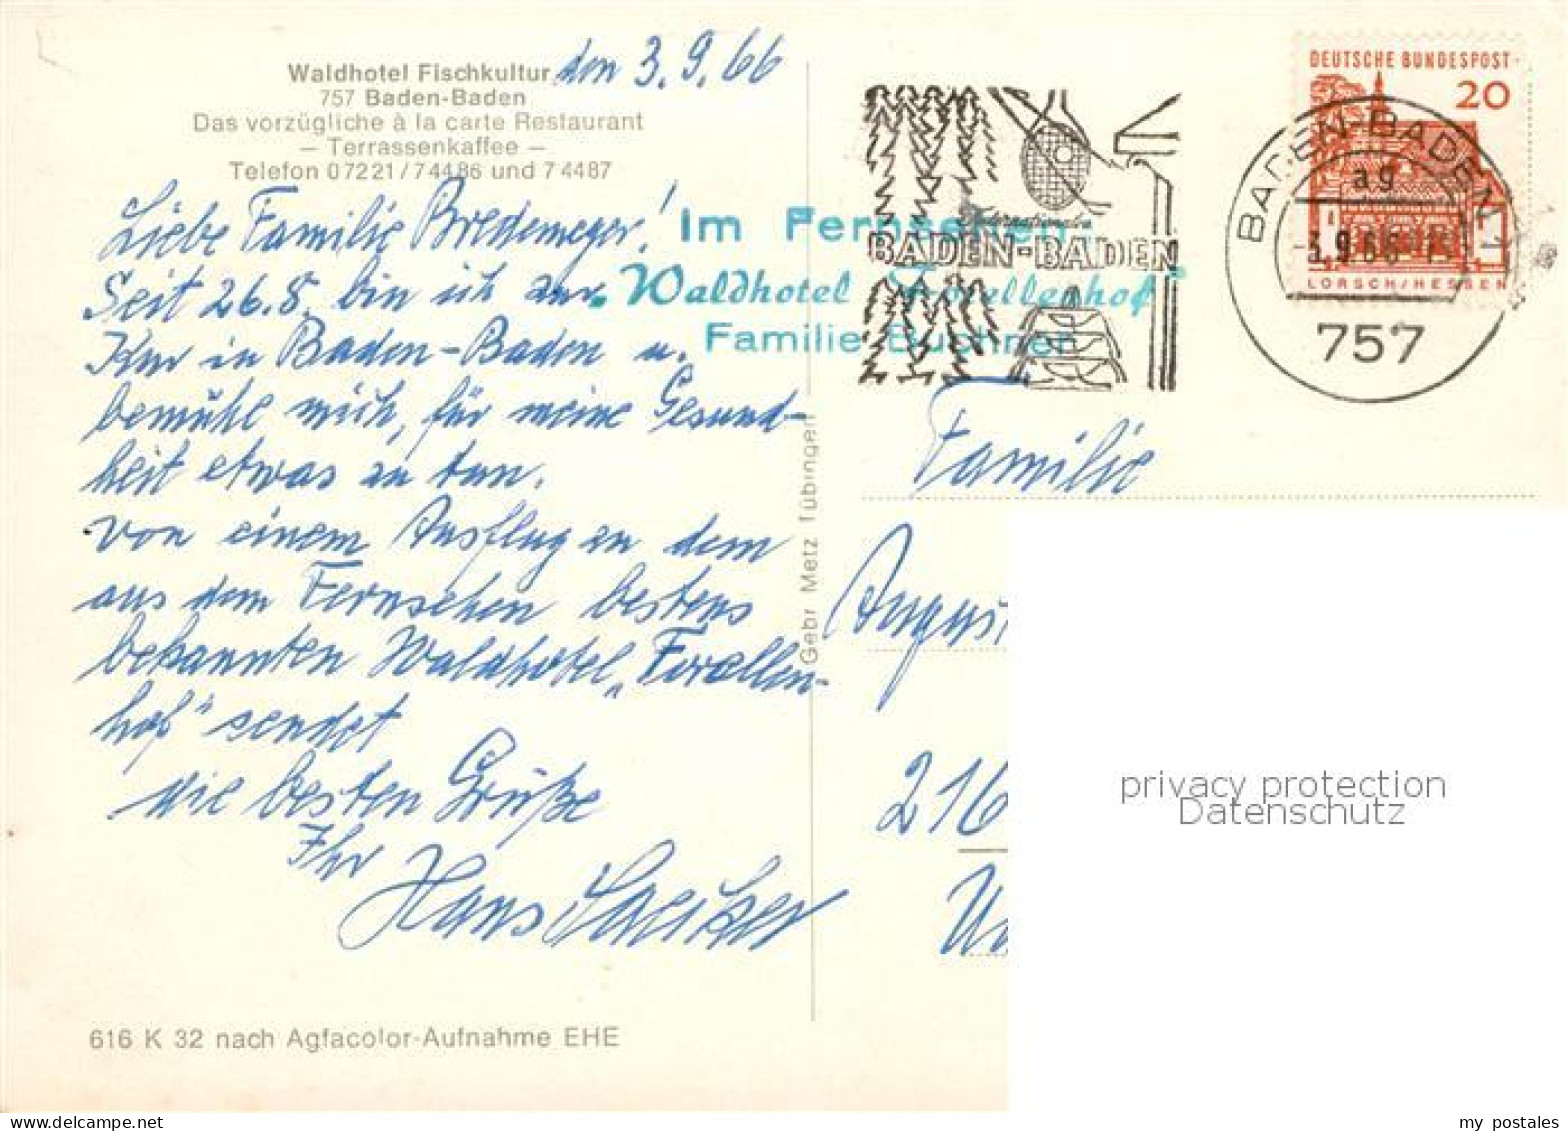 Waldhotel Fischkultur
757 Baden-Baden
Das vorzügliche à la carte Restaurant
— Terrassenkaffee —
Telefon 07221/74486 und 74487
den 3.9.66
Liebe Familie Bredemeyer!
Seit 26.8. bin ich zur
Kur in Baden-Baden u.
bemühe mich, für meine Gesund-
heit etwas zu tun.
Von einem Ausflug zu dem
aus dem Fernsehen bestens
bekannten Waldhotel „Forellen-
hof" sendet
die besten Grüße
Ihr
Hans
616 K 32 nach Agfacolor-Aufnahme EHE
Gebr Metz Tübingen
Im Fernsehen:
„Waldhotel Forellenhof"
Familie
BADEN-BADEN
DEUTSCHE BUNDESPOST
20
LORSCH/HESSEN
BADEN-BADEN 1
ag
-3.9.66
757
Familie
August
216
privacy protection
Datenschutz
my postales